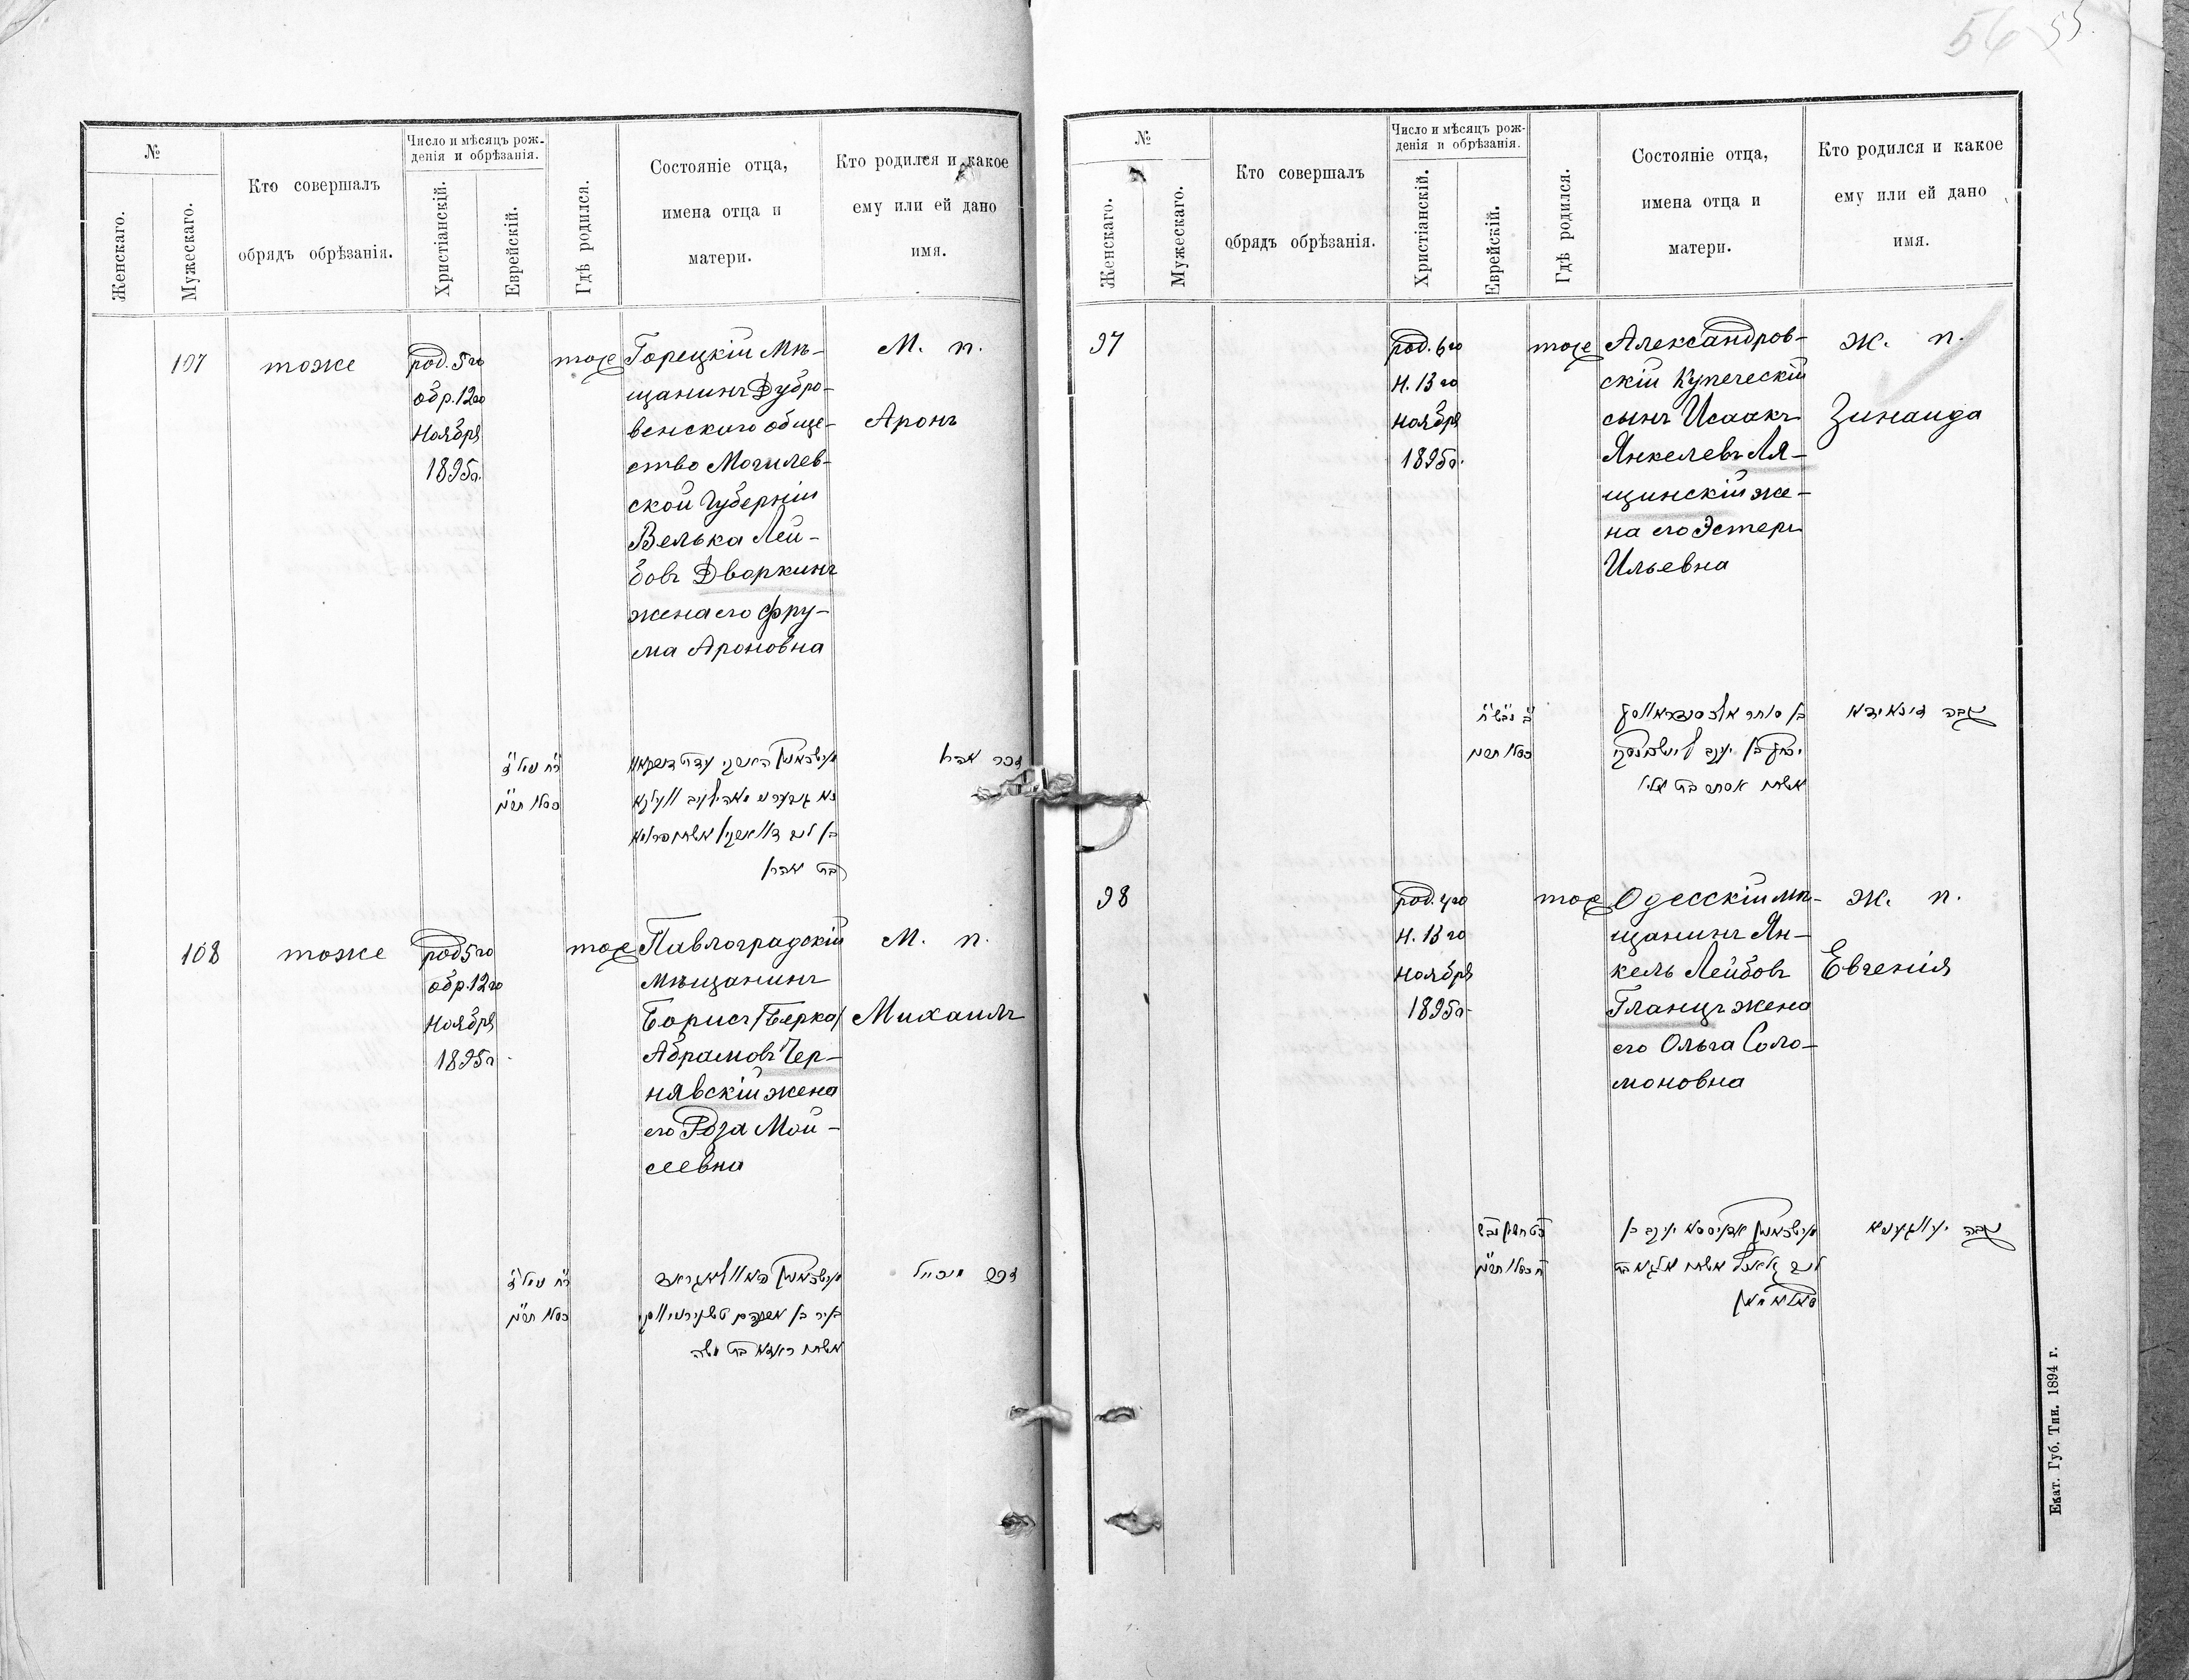 №
Женскаго.
Мужескаго.
Кто совершалъ
обрядъ обрѣзанія.
Число и мѣсяцъ рож-
денія и обрѣзанія.
Христіанскій.
Еврейскій.
Гдѣ родился.
Состояніе отца,
имена отца и
матери.
Кто родился и какое
ему или ей дано
имя.
107
тоже
род. 5го
обр. 12го
Ноября
1895г.
тоже
Горецкій Мѣ-
щанинъ Дубро-
венскаго обще-
ство Могилев-
ской Губерніи
Велька Лей-
бовъ Дворкинъ
жена его Фру-
ма Ароновна
М. п.
Аронъ
זכר אהרן
כסלו
בת אהרן
108
тоже
род 5го
обр. 12го
Ноября
1895г.
тоже
Павлоградскій
мѣщанинъ
Борисъ /Берка/
Абрамовъ Чер-
нявскій жена
его Роза Мои-
сеевна
М. п.
Михаилъ
כסלו
בת משה
56 55.
№
Женскаго.
Мужескаго.
Кто совершалъ
обрядъ обрѣзанія.
Число и мѣсяцъ рож-
денія и обрѣзанія.
Христіанскій.
Еврейскій.
Гдѣ родился.
Состояніе отца,
имена отца и
матери.
Кто родился и какое
ему или ей дано
имя.
97
род. 6го
Н. 13го
Ноября
1895г.
тоже
Александров-
скій Купеческій
сынъ Исаакъ
Янкелевъ Ля-
щинскій же-
на его Эстеръ
Ильевна
Ж. п.
Зинаида
נקבה זינאידא
כסלו
יצחק בן יעקב
אסתר בת
98
род. 4го
Н. 13го
Ноября
1895г.
тоже
Одесскій мѣ-
щанинъ Ян-
кель Лейбовъ
Гланцъ жена
его Ольга Соло-
моновна
Ж. п.
Евгенія
נקבה
יעקב בן
כסלו
Екат. Губ. Тип. 1894 г.